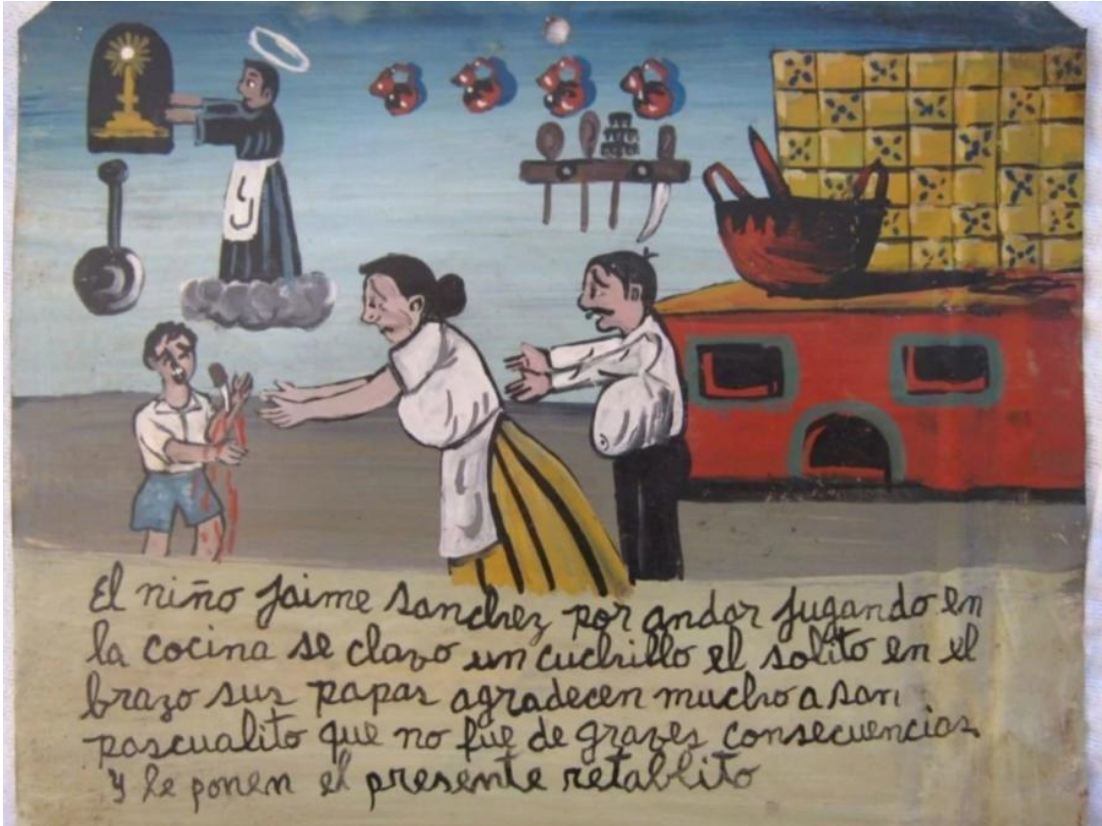 El niño Jaime Sanchez por andar jugando en
la cocina se clavo un cuchillo el solito en el
brazo sus papas agradecen mucho a san
pascualito que no fue de graves consecuencias
y le ponen el presente retablito